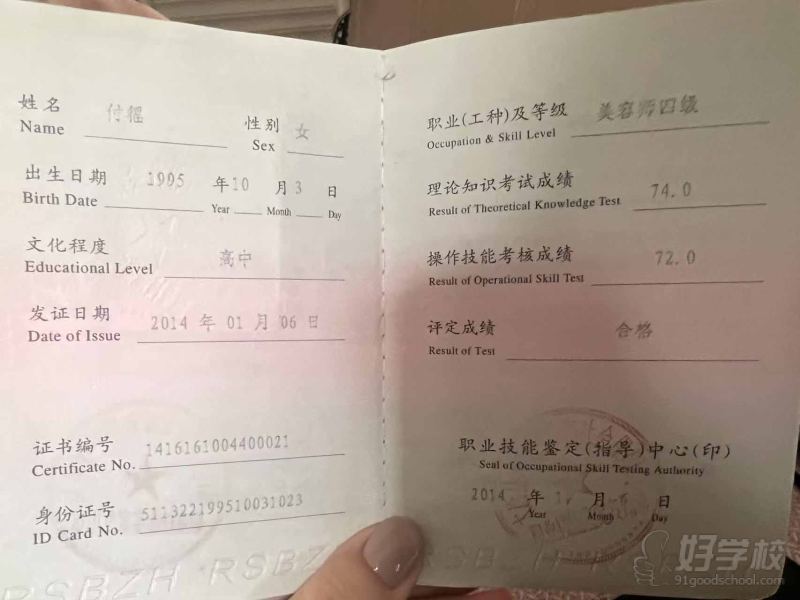 姓名 付
Name
性别 女
Sex
出生日期 1995 年 10 月 3 日
Birth Date Year Month Day
文化程度 高中
Educational Level
发证日期 2014 年 01 月 06 日
Date of Issue
证书编号 1416161004400021
Certificate No.
身份证号 511322199510031023
ID Card No.
RSBZH RSBZH
职业(工种)及等级 美容师四级
Occupation & Skill Level
理论知识考试成绩 74.0
Result of Theoretical Knowledge Test
操作技能考核成绩 72.0
Result of Operational Skill Test
评定成绩 合格
Result of Test
职业技能鉴定(指导)中心(印)
Seal of Occupational Skill Testing Authority
2014 年 月 日
Year Month Day
好学校
91goodschool.com